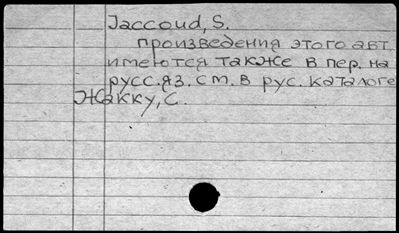 Jaccoud, S.
произведения этого авт.
имеются также в пер. на
русс. яз. см. в рус. каталоге
Жакку, С.